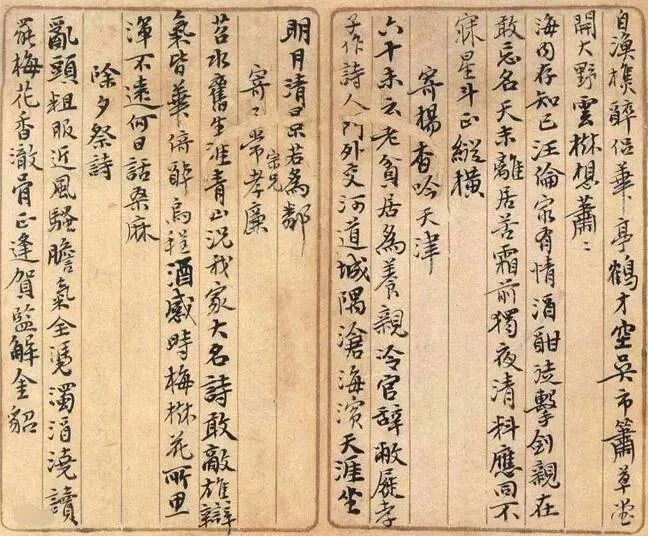 自漁樵醉侶華亭鶴才空吳市簫草堂
開大野雲樹想蕭〻
海內存知己汪倫最有情酒酣從擊劍親在
敢忘名天末離居苦霜前獨夜清料應同不
寐星斗正縱橫
寄楊香吟天津
六十未云老貧居為養親冷官辭敝屣孝
子作詩人門外交河道城隅滄海濱天涯坐
明月清景若為鄰
寄〻常宗兄孝廉
苕水舊生涯青山況我家大名詩敢敵雄辯
氣皆華倚醉烏程酒感時梅樹花所思
渾不遠何日話桑麻
除夕祭詩
亂頭粗服近風騷膽氣全憑濁酒澆讀
罷梅花香澈骨正逢賀監解金貂